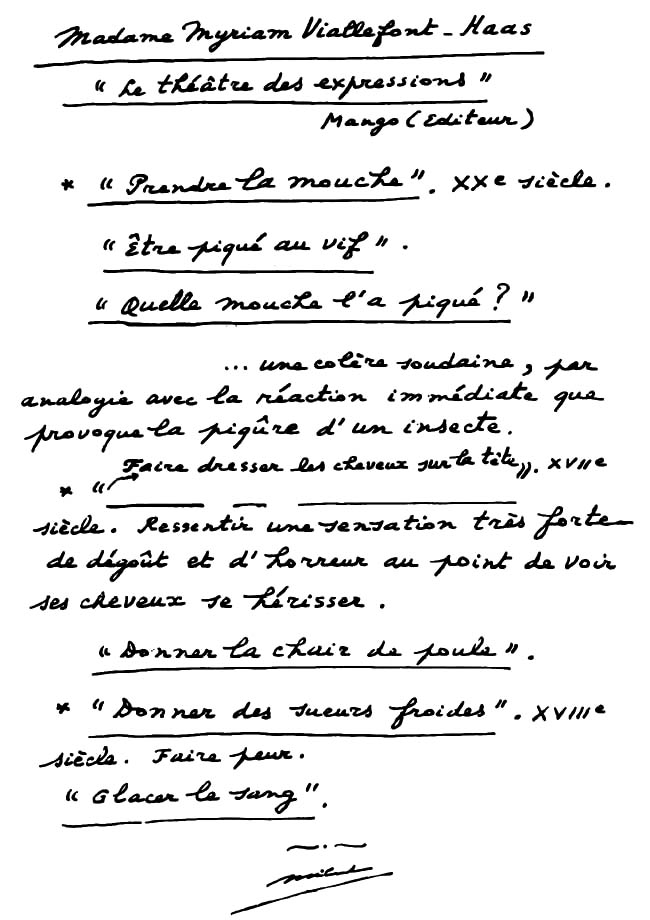 Madame Myriam Viallefont-Haas
"Le théâtre des expressions"
Mango (Editeur)
* "Prendre la mouche". XXe siècle.
"Être piqué au vif".
"Quelle mouche l'a piqué ?"
... une colère soudaine, par
analogie avec la réaction immédiate que
provoque la piqûre d'un insecte.
* "Faire dresser les cheveux sur la tête". XVIIe
siècle. Ressentir une sensation très forte
de dégoût et d'horreur au point de voir
ses cheveux se hérisser.
"Donner la chair de poule".
* "Donner des sueurs froides". XVIIIe
siècle. Faire peur.
"Glacer le sang".